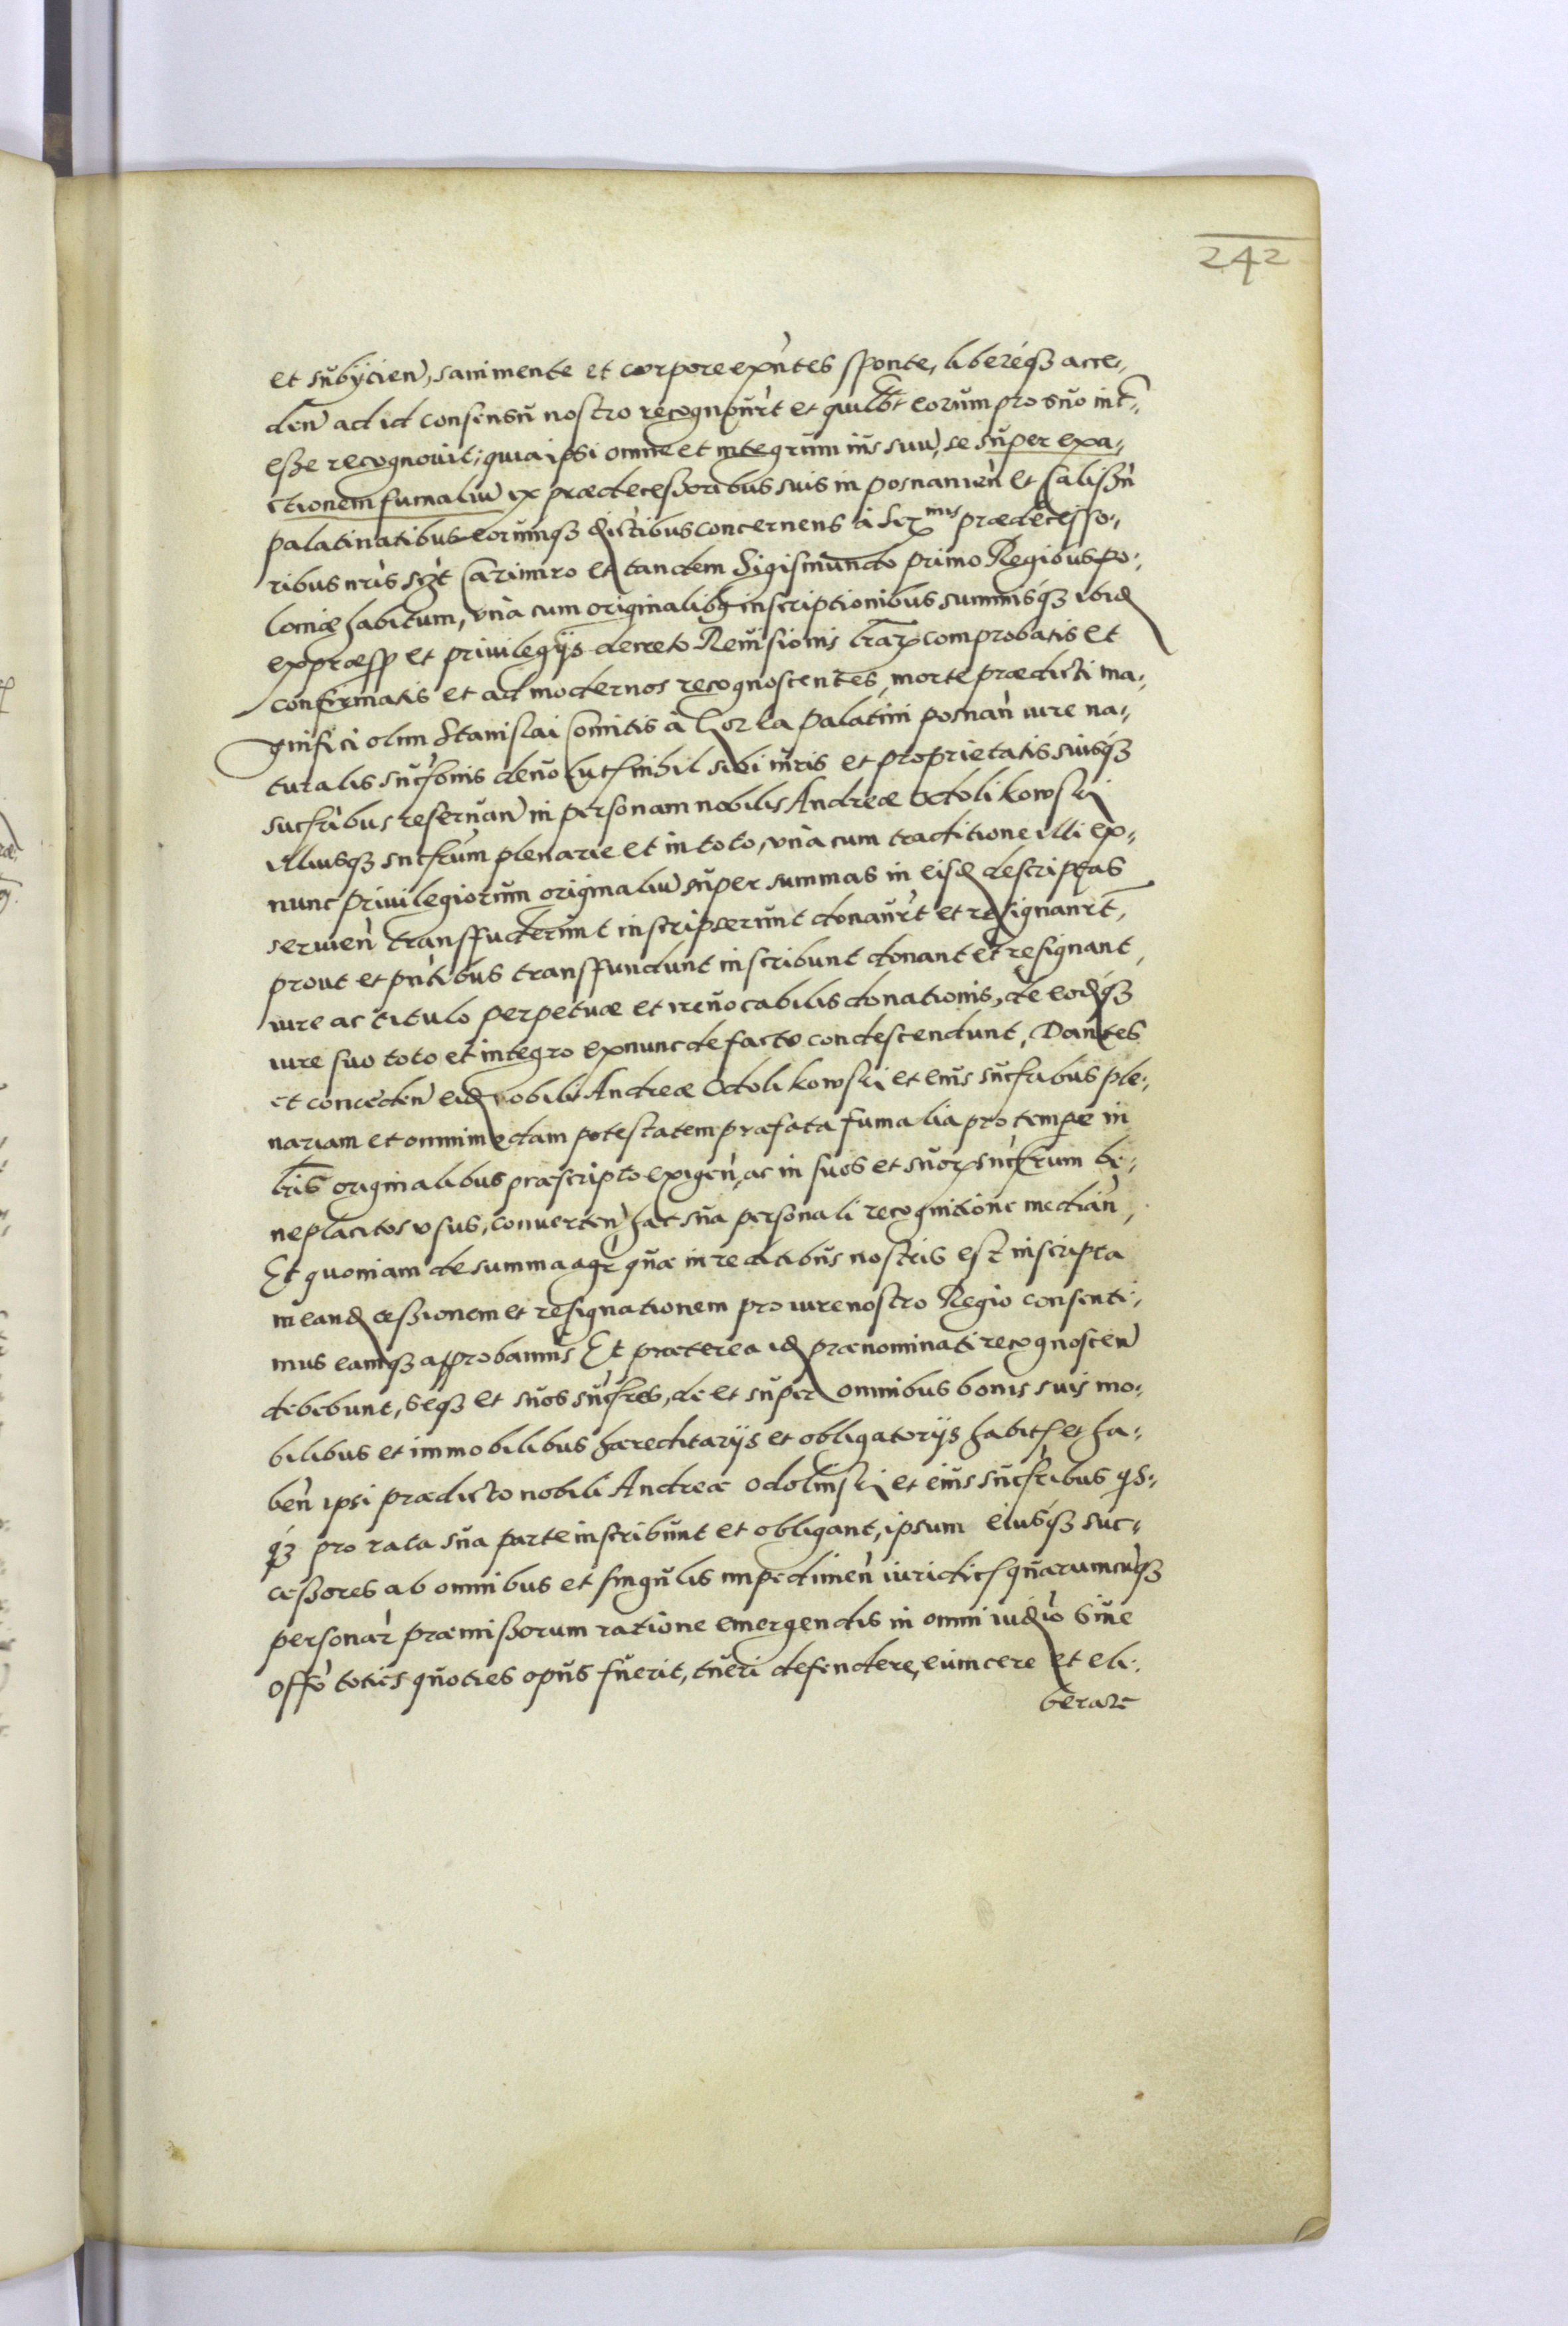 242
et subÿcien, sani mente et corpore exñtes sponte, liberéq₃ acce,
den ad id consensu nostro recognouȓt et quilbt eorum pro suo intr,
eße recognouit; quia ipsi omne et integrum ius suu, se super exa,
ctionem fumaliu ex prædeceßoribus suis in posnanień et Calisień
palatinatibus eorumq₃ distribus concernens à Serᵐⁱˢ prædecesso,
ribus nris szt Cazimiro et tandem Sigismundo primo Regibus Po,
loniæ habitum, vnà cum originalib₉ inscriptionibus summisq₃ ibid
expræss et priuilegijs decreto Reuisionis lrar comprobatis et
confirmatis et ad modernos recognoscentes, morte prædicti ma,
gnifici olim Stanislai Comitis à Gorka Palatini posnań iure na,
turalis succsionis deuolut nihil sibi iuris et proprietatis suisq₃
sucsribus reseruań in personam nobilis Andreæ Odolikowski
illiusq₃ sucsrum plenarie et in toto, vnà cum traditione illi ex,
nunc priuilegiorum originaliu super summas in eisd descriptas
seruień transffuderunt inscripserunt donauȓt et resignarȓt,
prout et pntibus transffundunt inscribunt donant et resignant,
iure ac titulo perpetuæ et irreuocabilis donationis, de eodq₃
iure suo toto et integro exnunc de facto condescendunt, Dantes
et conceden eid nobili Andreæ Odolikowski et eius sucsribus ple,
nariam et omnimodam potestatem præfata fumalia pro tempe in
lris originalibus præscripto exigeń, ac in suos et suor sucsrum be,
neplacitos vsus, conuerteń hac sua personali recognitione mediań,
Et quoniam de summa agr quæ in reditibus nostris est inscripta
in eand ceßionem et resignationem pro iure nostro Regio consenti,
mus eamq₃ approbamus Et præterea id prænominati recognosceń
debebunt, seq₃ et suos sucsres, de et super omnibus bonis suis mo,
bilibus et immobilibus hæreditarijs et obligatorijs habit et ha,
beń ipsi prædicto nobili Andreæ Odolinski et eius sucsribus qs,
q₃ pro rata sua parte inscribunt et obligant, ipsum eiusq₃ suc,
ceßores ab omnibus et singulis impedimeń iuridic quarumcuq₃
personar præmißorum ratione emergendis in omni iudio siue
offo toties quoties opus fuerit, tueri defendere, euincere et eli,
berare